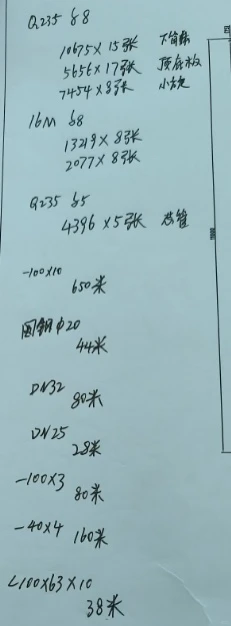 Q235 δ8
10675×15张 下育
5656×17张 顶底板
7454×8张 小块
16M δ8
13219×8张
2077×8张
Q235 δ5
4396×5张 芯管
-100×10
650米
圆钢φ20
44米
DN32
80米
DN25
28米
-100×3
80米
-40×4
160米
∠100×63×10
38米